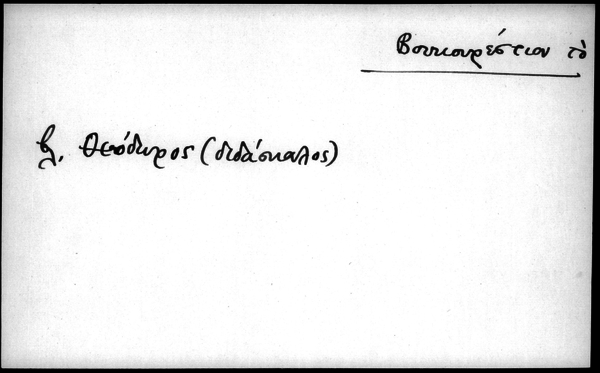 Βουκουρέστιον τὸ
βλ. Θεόδωρος (διδάσκαλος)